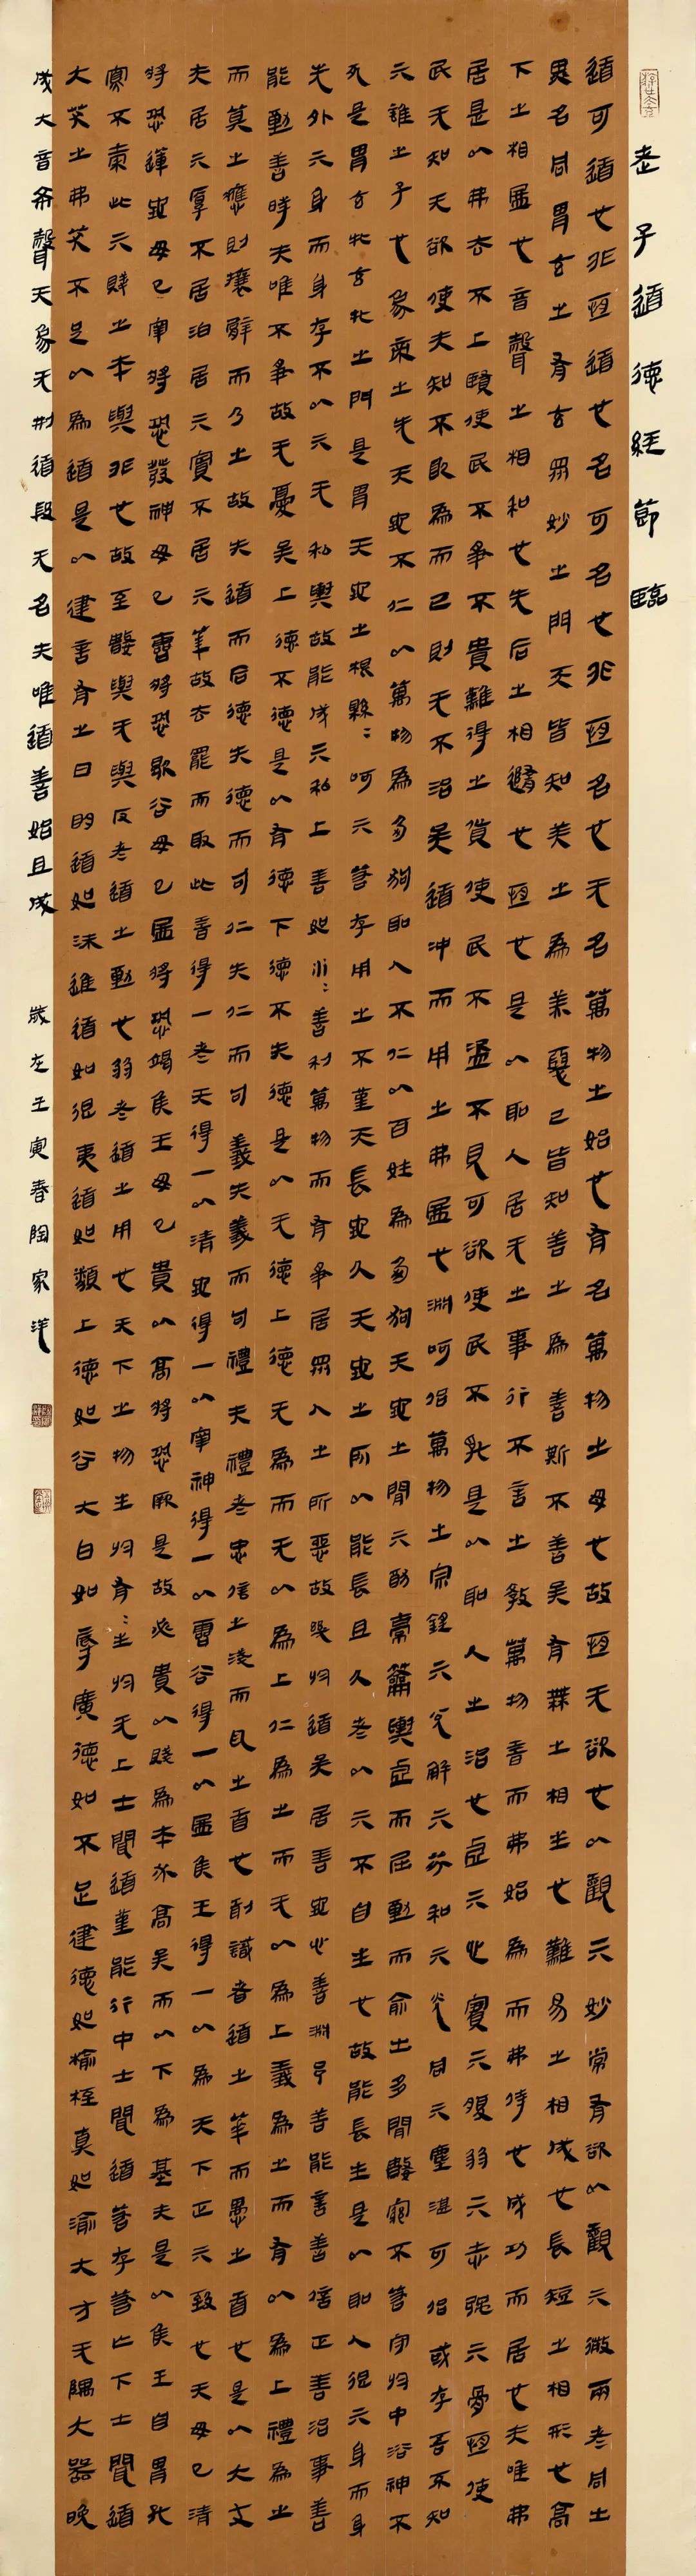 老子道德經節臨
道可道也非恆道也名可名也非恆名也无名萬物之始也有名萬物之母也故恆无欲也以觀亓妙常有欲以觀亓微兩者同出
異名同胃玄之有玄眾妙之門天皆知美之為美惡已皆知善之為善斯不善矣有無之相生也難易之相成也長短之相形也高
下之相盈也音聲之相和也先后之相隨也恆也是以聖人居无之事行不言之教萬物昔而弗始為而弗侍也成功而居也夫唯弗
居是以弗去不上賢使民不爭不貴難得之貨使民不盜不見可欲使民不亂是以聖人之治也虛亓心實亓腹弱亓志強亓骨恆使
民无知无欲使夫知不敢為而已則无不治矣道沖而用之弗盈也淵呵佁萬物之宗銼亓兌解亓紛和亓光同亓塵湛呵佁或存吾不知
亓誰之子也象帝之先天地不仁以萬物為芻狗聖人不仁以百姓為芻狗天地之間亓猶橐籥輿虛而屈動而俞出多聞數窮不若守於中浴神不
死是胃玄牝玄牝之門是胃天地之根縣=呵亓若存用之不堇天長地久天地之所以能長且久者以亓不自生也故能長生是以聖人後亓身而身
先外亓身而身存不以亓无私輿故能成亓私上善如水=善利萬物而有爭居眾人之所惡故幾於道矣居善地心善淵予善能言善信正善治事善
能動善時夫唯不爭故无憂矣上德不德是以有德下德不失德是以无德上德无為而无以為上仁為之而无以為上義為之而有以為上禮為之
而莫之應則攘臂而乃之故失道而后德失德而句仁失仁而句義失義而句禮夫禮者忠信之淺而亂之首也前識者道之華而愚之首也是以大丈
夫居亓厚不居泊居亓實不居亓華故去罷而取此昔得一者天得一以清地得一以寧神得一以靈谷得一以盈侯王得一以為天下正亓致也天毋已清
將恐蓮地毋已寧將恐發神毋已靈將恐歇谷毋已盈將恐竭侯王毋已貴以高將恐厥是故必貴以賤為本必高矣而以下為基夫是以侯王自胃孤
寡不穀此亓賤之本輿非也故至數輿无輿反者道之動也弱者道之用也天下之物生於有=生於无上士聞道堇能行中士聞道若存若亡下士聞道
大笑之弗笑不足以為道是以建言有之曰明道如沬進道如退夷道如類上德如谷大白如辱廣德如不足建德如揄桎真如渝大方无隅大器晚
成大音希聲天象无刑道段无名夫唯道善始且成
歲在壬寅春陶家洋